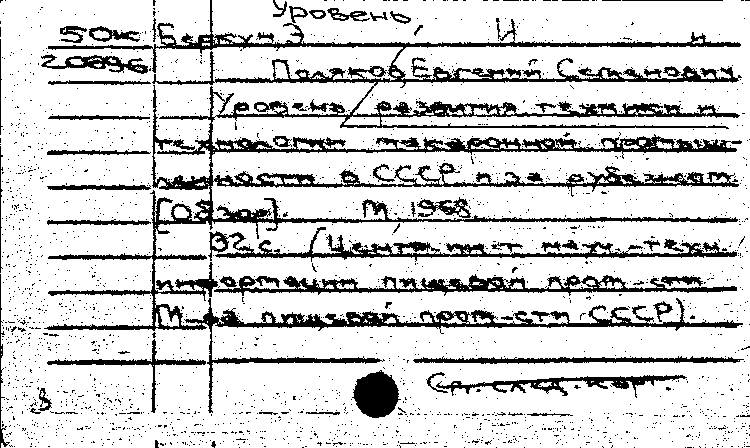 Уровень
50к Беркун, Э И и
20696 Поляков, Евгений Семенович.
Уровень развития техники и
технологии макаронной промыш-
ленности в СССР и за рубежом.
[Обзор]. М. 1968.
32 с. (Центр. ин-т науч.-техн.
информации пищевой пром-сти
М-ва пищевой пром-сти СССР).
См. след. карт.